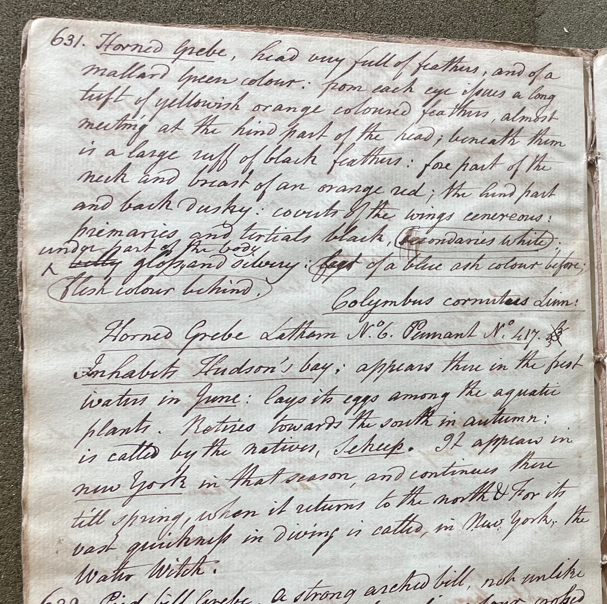 631. Horned Grebe, head very full of feathers, and of a
mallard green colour: from each eye issues a long
tuft of yellowish orange coloured feathers, almost
meeting at the hind part of the head; beneath them
is a large ruff of black feathers: fore part of the
neck and breast of an orange red; the hind part
and back dusky: coverts of the wings cenereous:
primaries and tertials black, secondaries white:
under part of the body
^ belly glossy and silvery: feet of a blue ash colour before;
flesh colour behind.
Colymbus cornutus Linn:
Horned Grebe Latham No. 6. Pennant No. 417.
Inhabits Hudson's bay; appears there in the first
waters in June: lays its eggs among the aquatic
plants. Retires towards the south in autumn:
is called by the natives, Sekeep. It appears in
new York in that season, and continues there
till spring, when it returns to the north & For its
vast quickness in diving is called, in New York, the
Water Witch.
Pied bill Grebe, a strong arched bill, not unlike